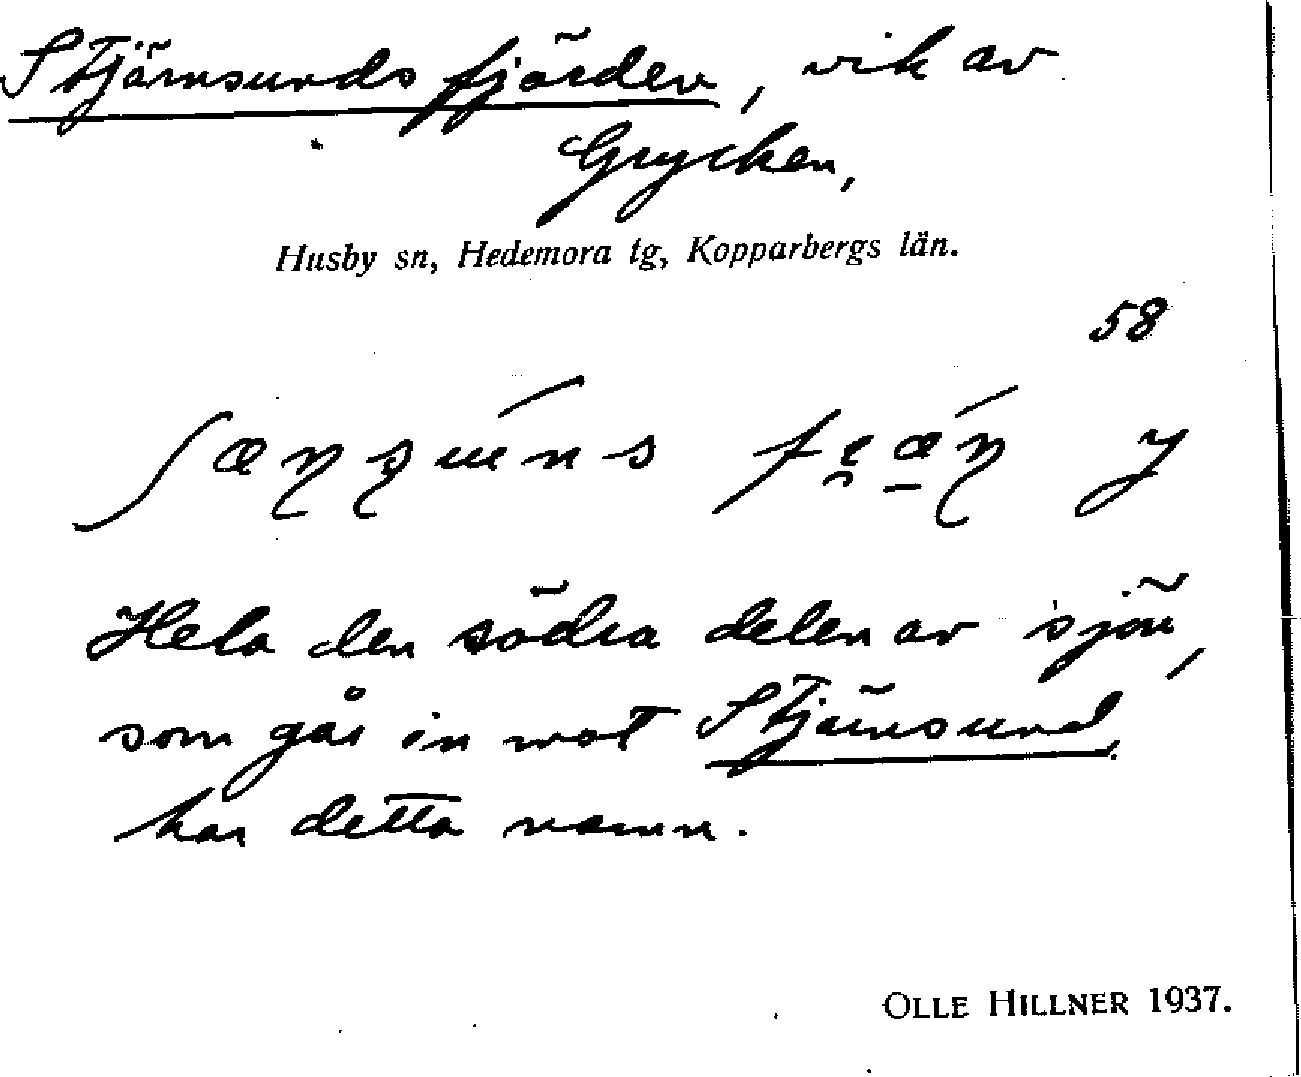 Stjärnsundsfjärden, vik av
Grycken,
Husby sn, Hedemora tg, Kopparbergs län.
58
Hela den södra delen av sjön,
som går in mot Stjärnsund
har detta namn.
OLLE HILLNER 1937.